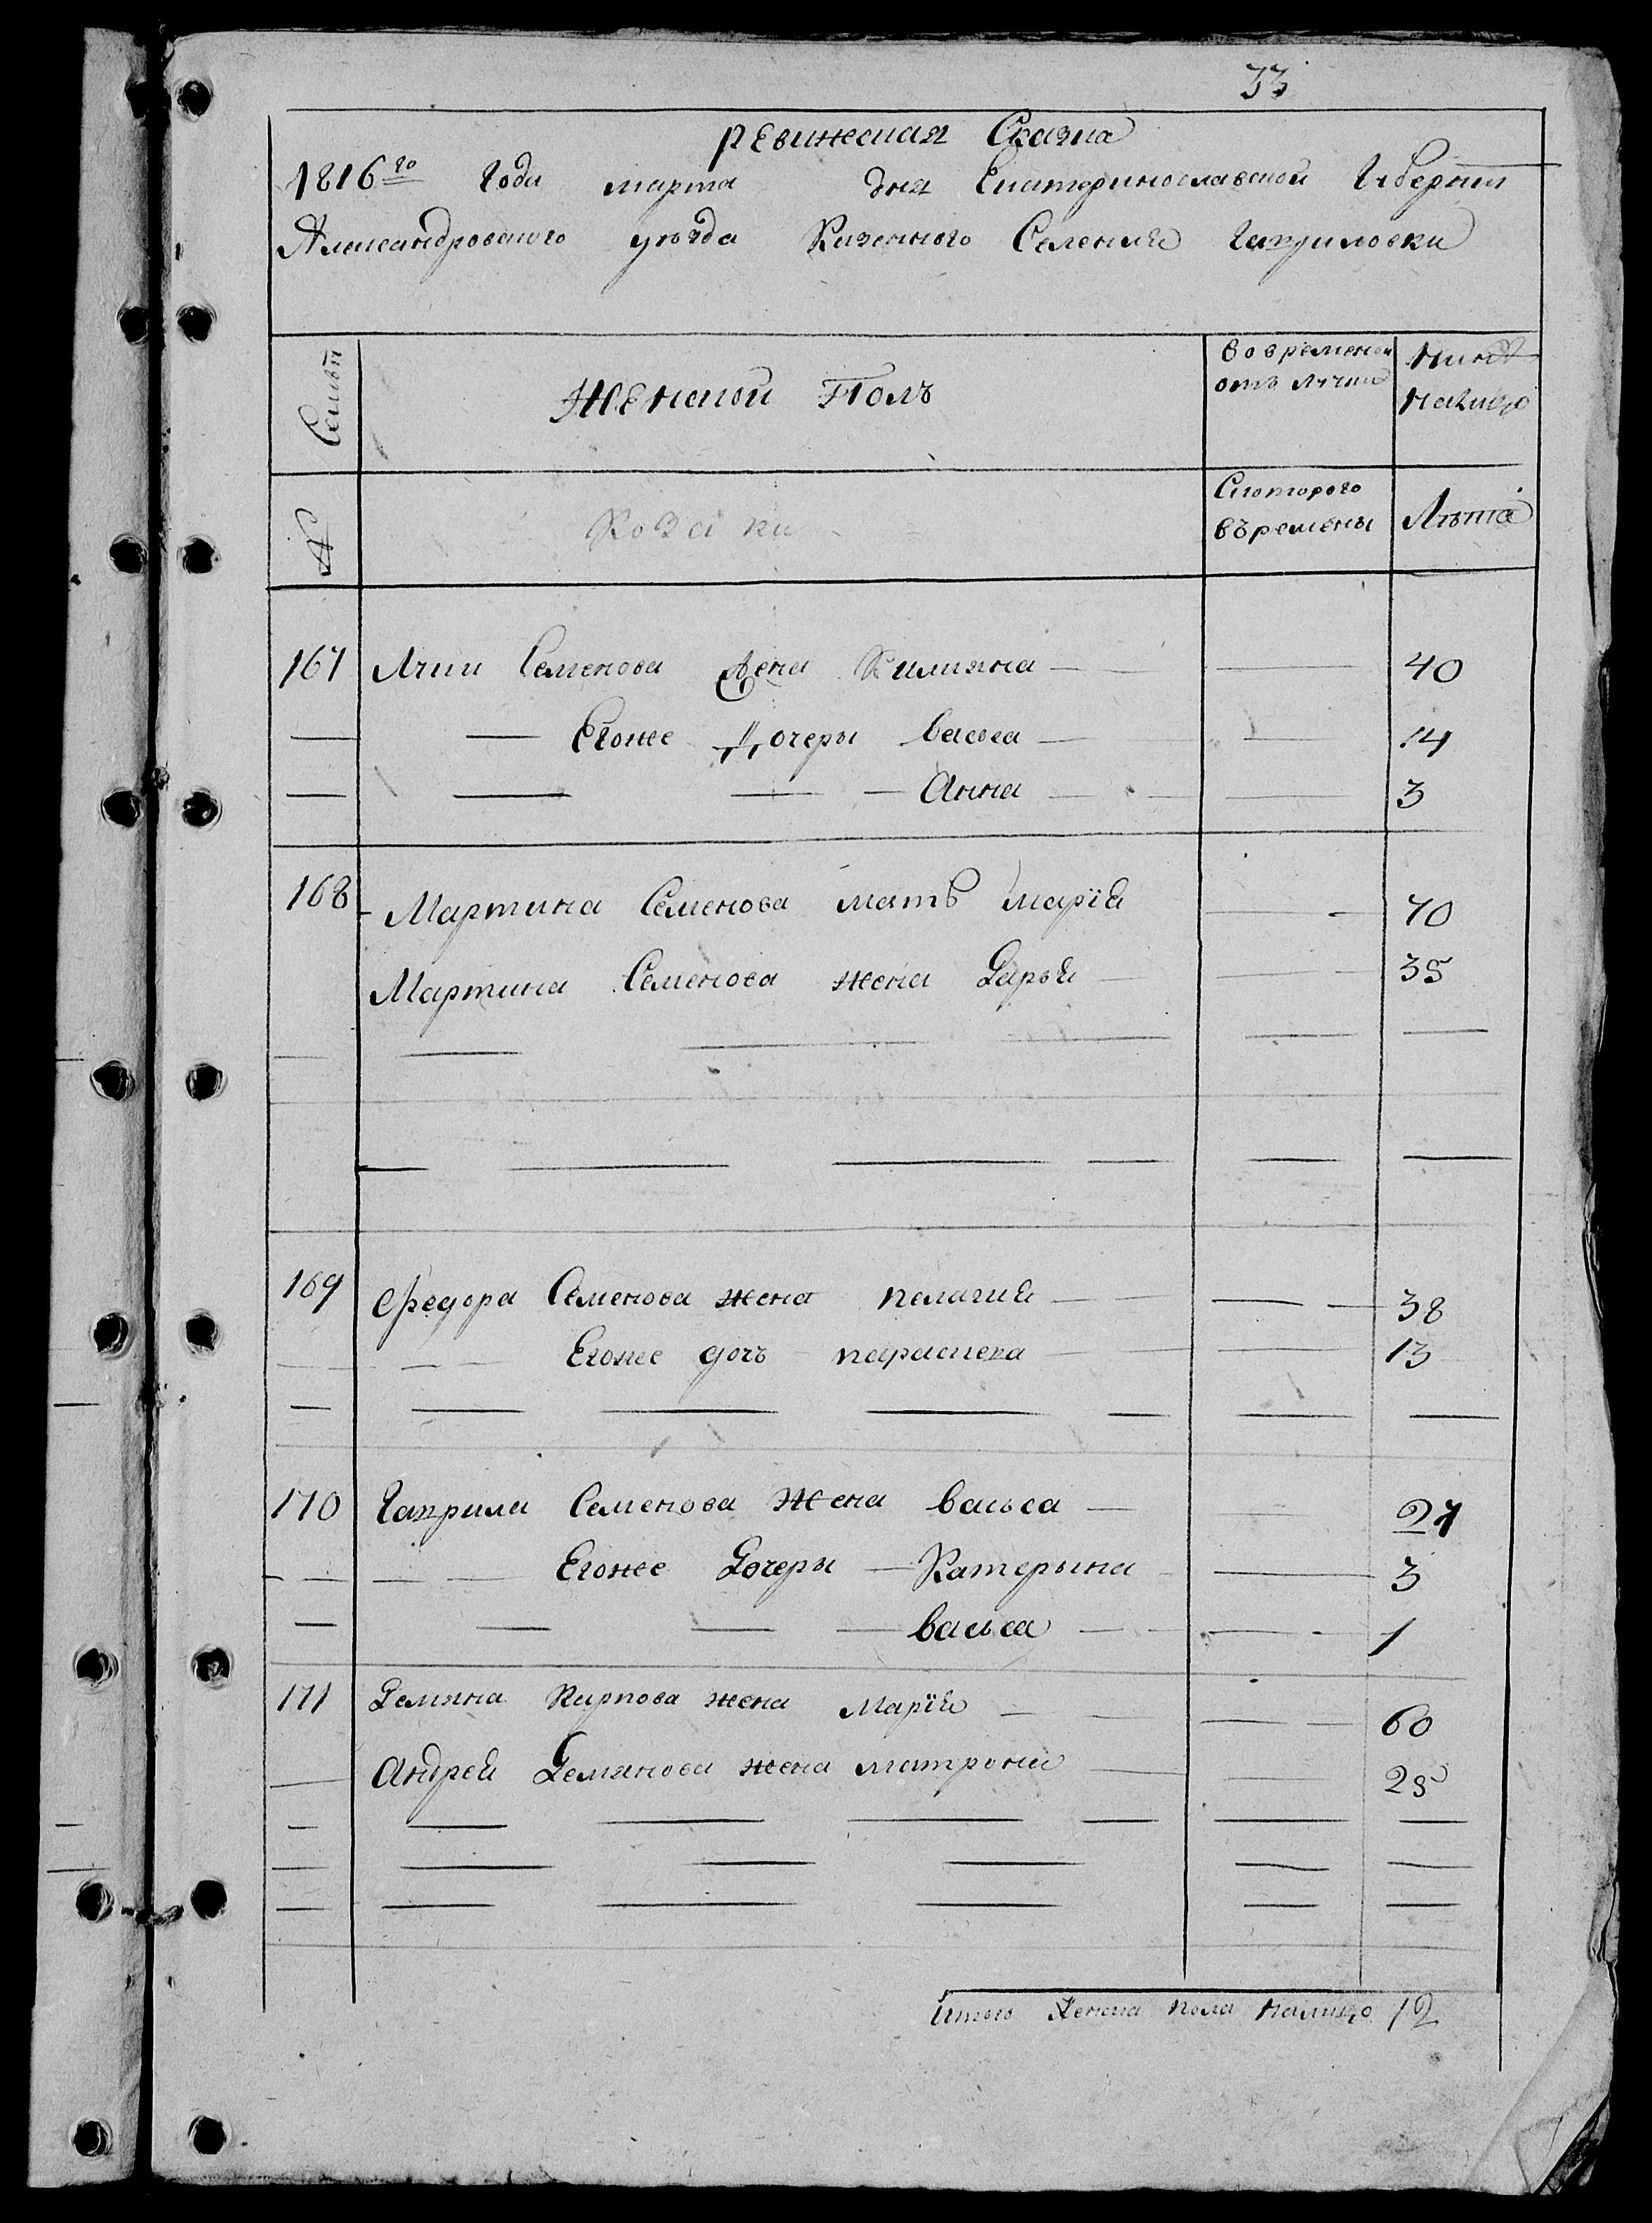 33
ревижеская Сказка
1816го Года марта дня Екатеринославской Губерни
Александровского уезда Казенного Селения Гавриловки
Семьи
Женской Полъ
во временной отъ лучке
Ныне налицо
№
Козачки
С которого времены
Лета
167 Семенова жена Килияна 40
Егоже Дочеры васька 14
Анна 3
168 Мартина Семенова мать мария 70
Мартина Семенова жена Дарья 35
169 Федора Семенова жена пелагия 38
Егоже дочъ параскева 13
170 Гаврила Семенова жена васьса 27
Егоже Дочеры Катерына 3
васьса 1
171 Демяна Карпова жена Мария 60
Андрея Демянова жена матрона 25
Итого женска пола налицо 12